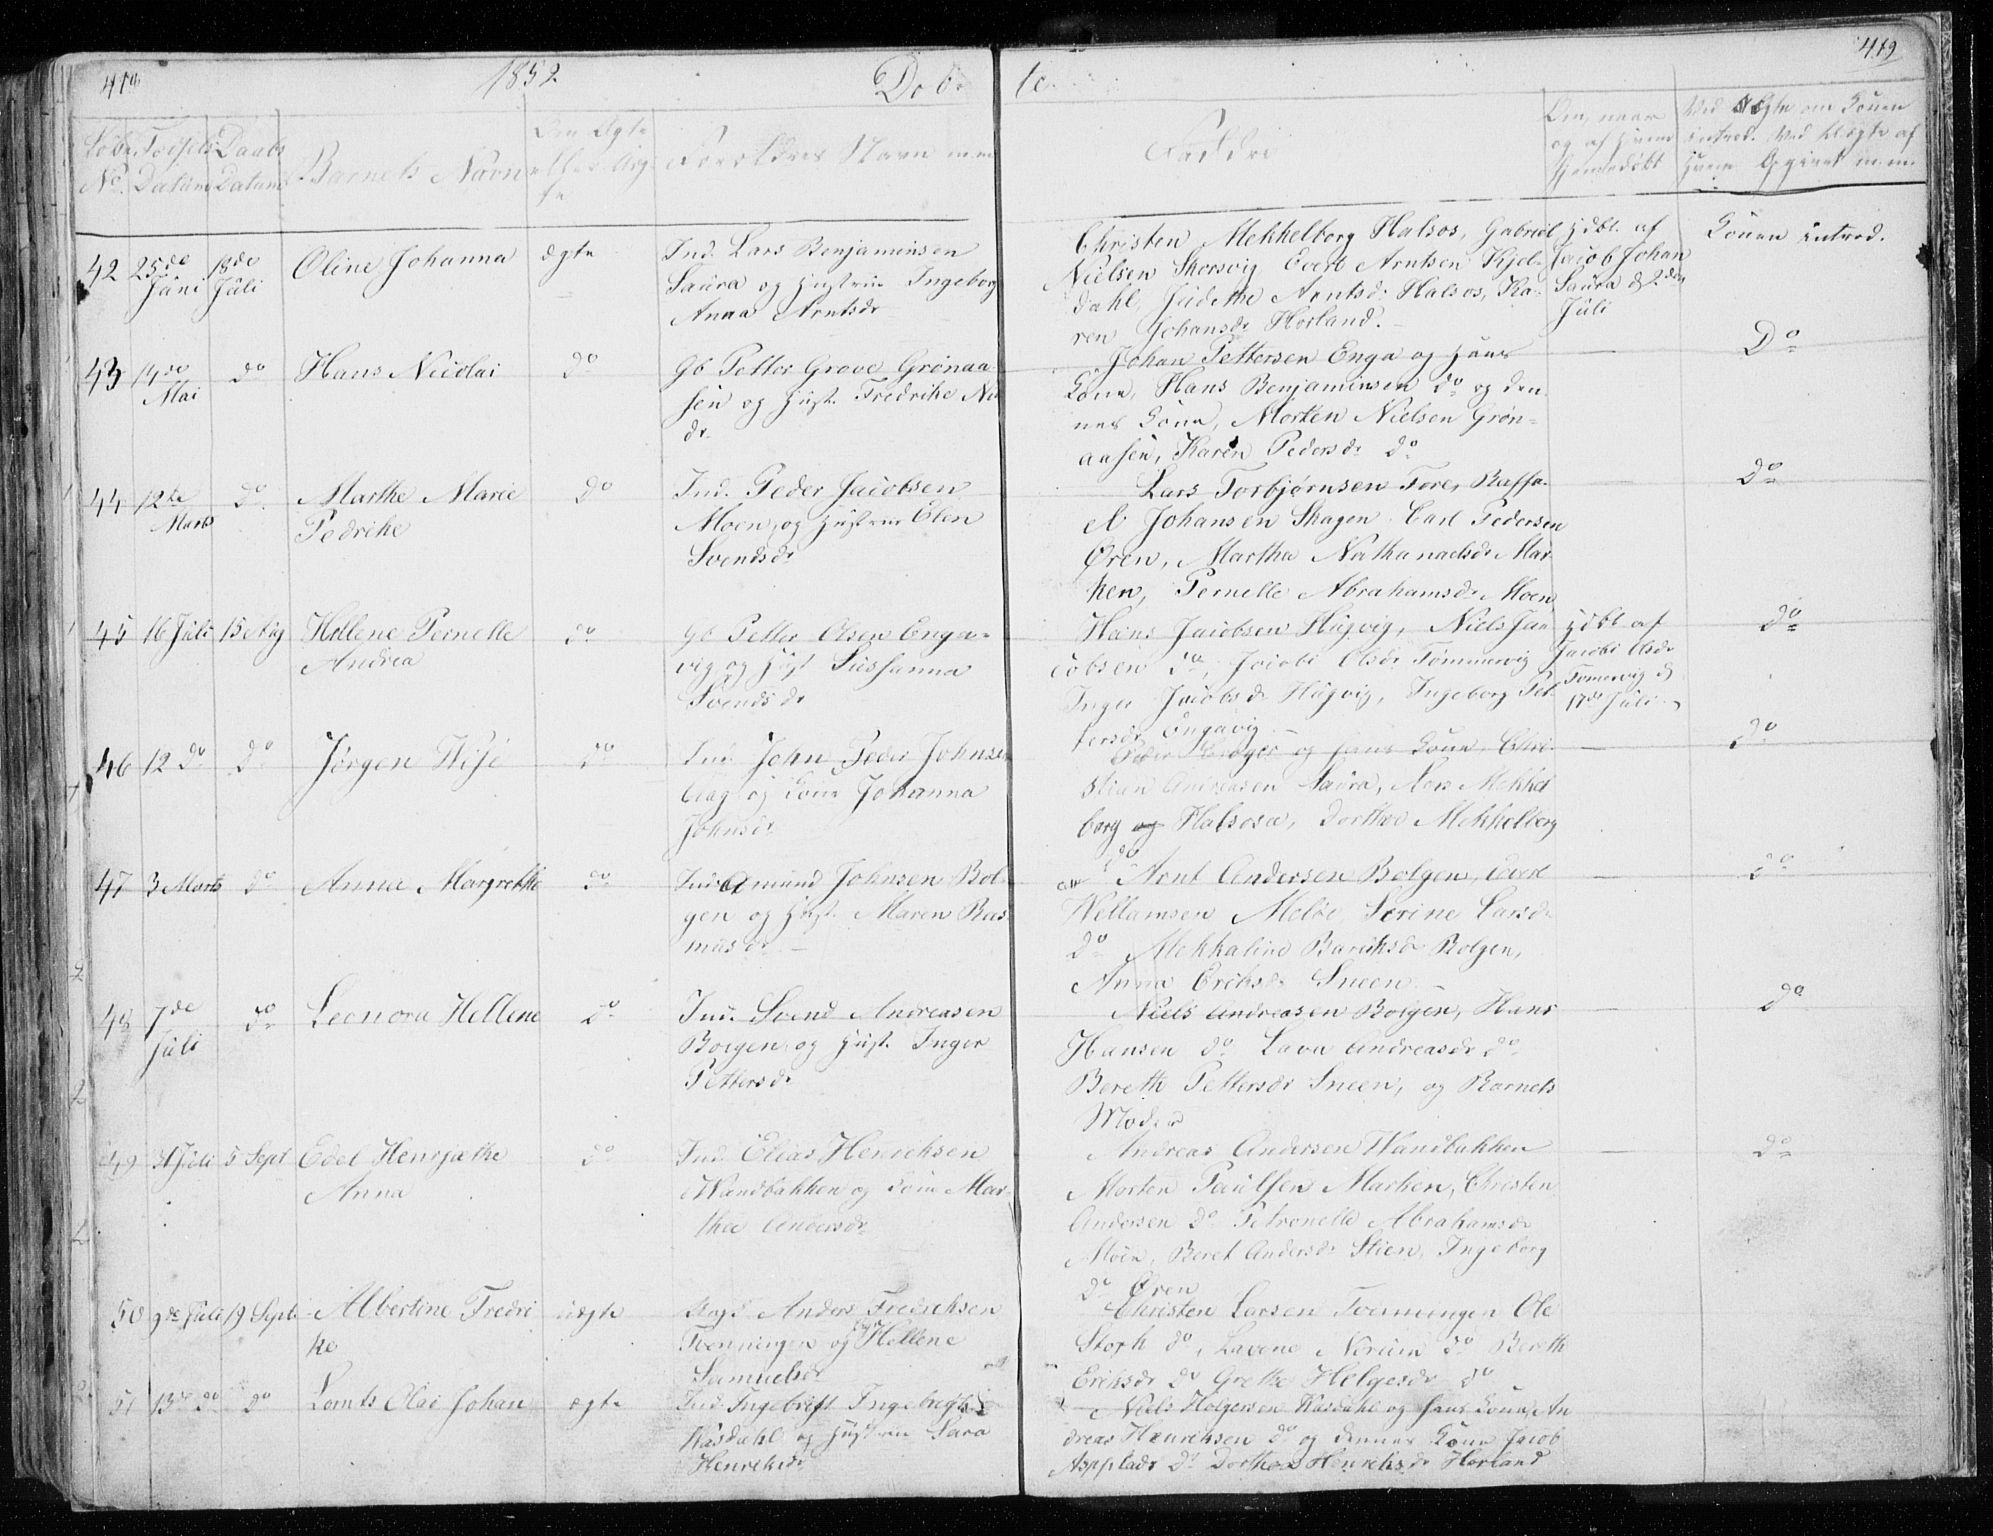 1852
Døbte
419
Løbe
No.
Fødsels
Datum
Daabs
Datum
Barnets Navn
Om Ægte
eller Uæg-
te
Forældres Navn m.m.
Faddre
Om, naar
og af hvem
hjemmedøbt
Ved Ægte, om Konen
introd. Ved Uægte af
hvem Opgivet m.m.
42
25de
Juni
18de
Juli
Oline Johanna
ægte
Ind. Lars Benjaminsen
Saura og Hustrue Ingeborg
Anna Arntsdr
Christen Mekkelborg Halsos, Gabriel
Nielsen Skorsvig Evert Arntsen Kjel-
dahl, Judithe Arntsdr Halsos, Ka-
ren Johansdr Horland.
hdbt. af
Jacob Johan
Saura d 2den
Juli
Konen introd.
43
14de
Mai
do
Hans Nicolai
do
Gb Petter Grove Grønaa
sen og Hust. Fredrike Ni
dr.
Johan Pettersen Enga og Hans
Kone, Hans Benjaminsen do og den
nes Kone, Morten Nielsen Grøn-
aasen, Karen Pedersdr do
Do
44
12te
Marts
do
Marthe Marie
Pedrike
do
Ind. Peder Jacobsen
Moen, og Hustrue Elen
Svendsdr
Lars Torbjørnsen Fore, Raffa-
el Johansen Skagen Carl Pedersen
Øren, Martha Nathanaelsdr Mar
ken, Pernelle Abrahamsdr Moen
Do
45
16 Juli
15 Aug
Hellene Pernelle
Andrea
do
Gb Petter Olsen Enga-
vig og Hust Sussanna
Svendsdr
Hans Jacobsen Hugvig, Niels Ja-
cobsen do, Jacobi Olsdr Tømmervig
Inger Jacobsdr Hugvig, Ingeborg Pet
tersdr Engavig
hdbt af
Jacobi Olsdr
Tømervig d
17de Juli
do
46
12 do
do
Jørgen Wise
do
Ind. John Peder Johnsen
og Kone Johanna
Johnsdr
Peder og Hans Kone, Chri-
stian Andreasen Saura, Mekkel
borg Halsosa, Dorthea Mekkelborg
do
do
47
3 Marts
do
Anna Margrethe
do
Ind. Amund Johnsen Bol-
gen og Hust. Maren Ras
musdr
Arnt Andersen Bolgen, Evert
Wellamsen Meløe, Serine Larsdr
do Mekkaline Baruksdr Bolgen,
Anna Eriksdr Sneen
do
48
7de
Juli
do
Leonora Hellene
do
Ind. Svend Andreasen
Bolgen og Hust. Inger
Pettersdr
Niels Andreasen Bolgen, Hans
Hansen do Lava Andreasdr do
Bereth Pettersdr Sneen, og Barnets
Moder
do
49
31 Juli
5 Sept
Edel Henrjethe
Anna
do
Ind. Elias Henriksen
Wandbakken og Kone Mar-
thea Andersdr
Andreas Andersen Wandbakken
Morten Paulsen Marken, Christen
Andersen do Petronelle Abrahamsdr
Moen, Beret Andersdr Stien, Ingeborg
do Øren
do
50
9de Juli
19 Sept
Albertine Fredri
ke
uægte
Anders Fredriksen
Tvenningen og Hellene
Samuelsdr
Christen Larsen Tvenningen Ole
Storh do, Lavene do Bereth
Eriksdr do Grethe Helgesdr do
51
13de do
do
Lornts Olai Johan
ægte
Ind. Ingebrigt Ingebrigts
Kasdahl og Hustrue Sara
Henriksdr
Niels Holgersen Kasdahl og Hans Kone, An
dreas Henriksen do og dennes Kone Jacob
do Dorthea Henriksdr Horland